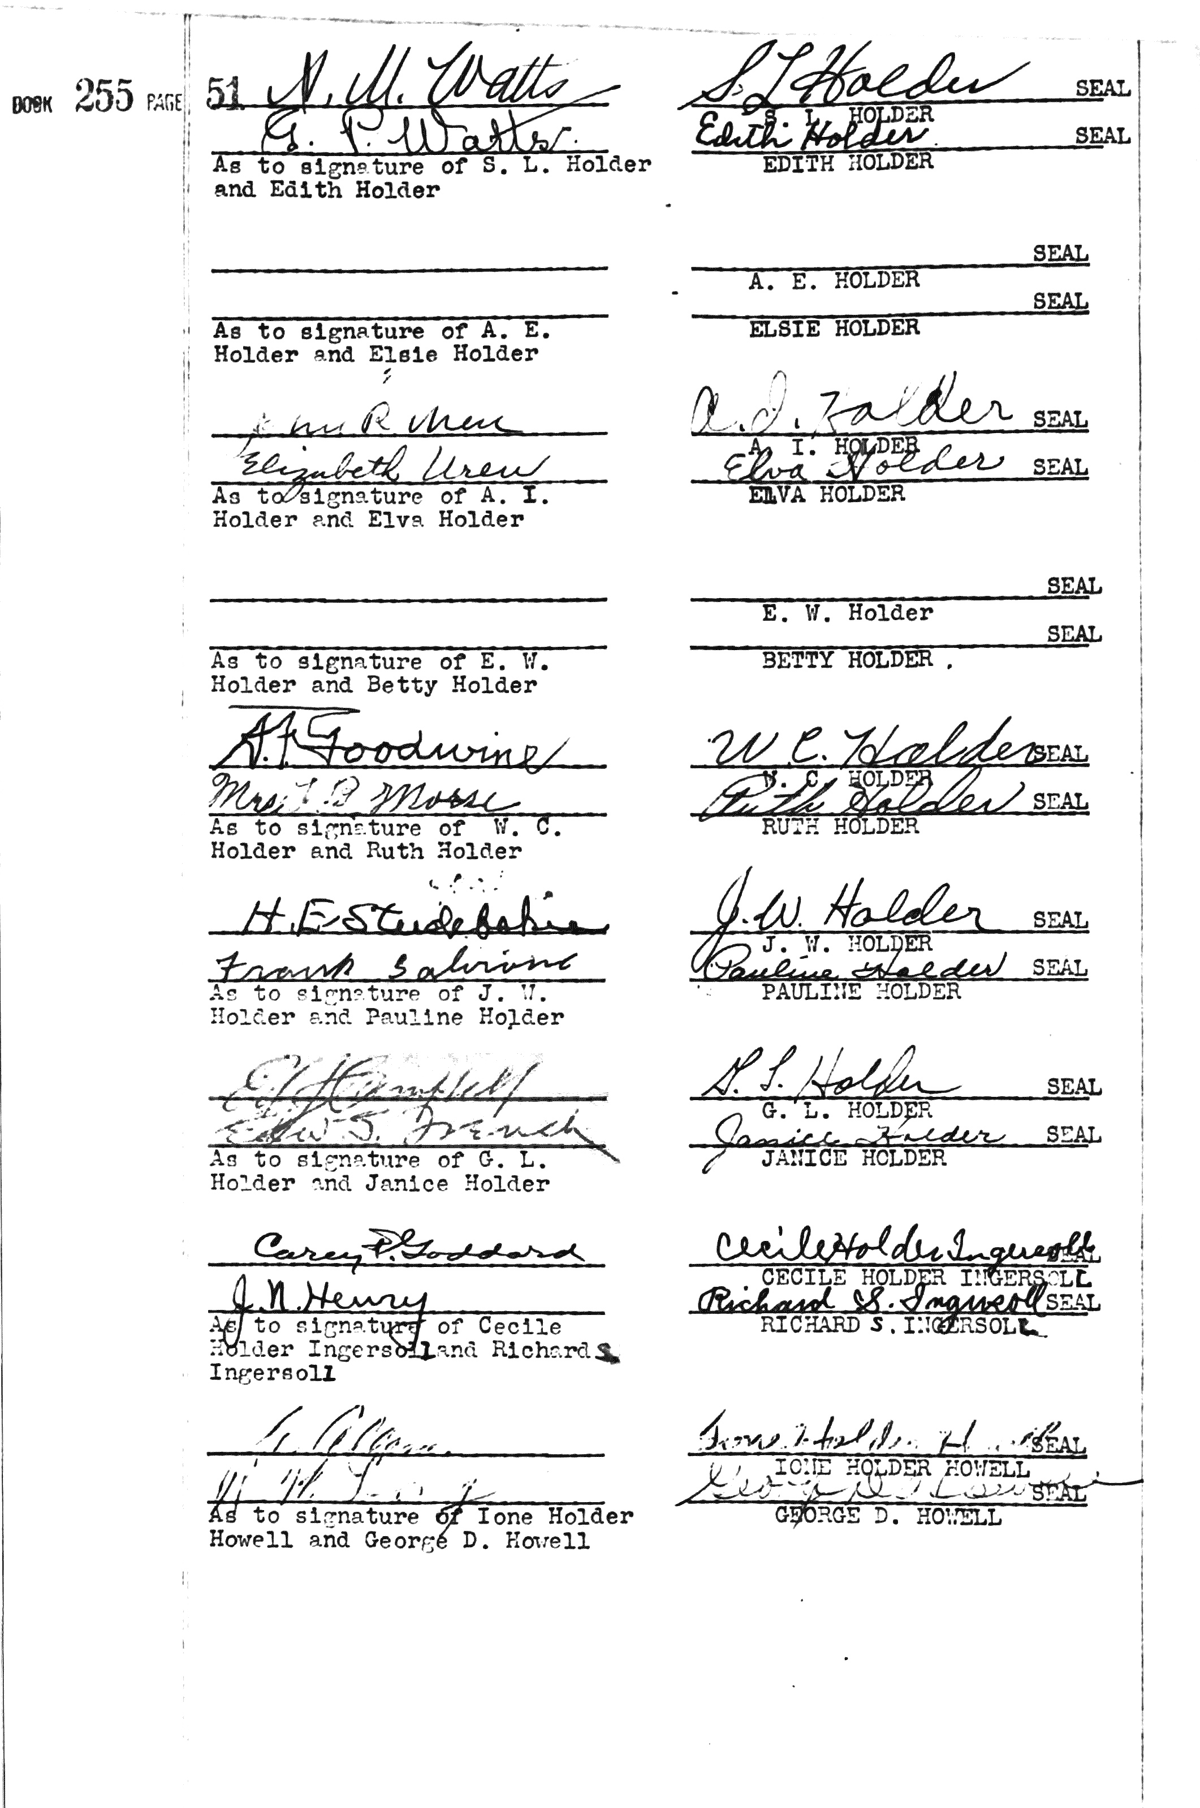 BOOK 255 PAGE 51
N. M. Watts S. L. Holder SEAL
S. L. HOLDER
G. P. Watts Edith Holder SEAL
As to signature of S. L. Holder EDITH HOLDER
and Edith Holder
SEAL
A. E. HOLDER
SEAL
As to signature of A. E. ELSIE HOLDER
Holder and Elsie Holder
R A. I. Holder SEAL
A. I. HOLDER
Elizabeth Uren Elva Holder SEAL
As to signature of A. I. ELVA HOLDER
Holder and Elva Holder
SEAL
E. W. Holder
SEAL
As to signature of E. W. BETTY HOLDER.
Holder and Betty Holder
A. F. Goodwine W. C. Holder SEAL
W. C. HOLDER
Mrs. Morse Ruth Holder SEAL
As to signature of W. C. RUTH HOLDER
Holder and Ruth Holder
H. E. Studebaker J. W. Holder SEAL
J. W. HOLDER
Frank Pauline Holder SEAL
As to signature of J. W. PAULINE HOLDER
Holder and Pauline Holder
Campbell G. L. Holder SEAL
G. L. HOLDER
Edw S. French Janice Holder SEAL
As to signature of G. L. JANICE HOLDER
Holder and Janice Holder
Carey P. Goddard Cecile Holder Ingersoll SEAL
CECILE HOLDER INGERSOLL
J. N. Henry Richard S. Ingersoll SEAL
As to signature of Cecile RICHARD S. INGERSOLL
Holder Ingersoll and Richard S.
Ingersoll
Ione Holder Howell SEAL
IONE HOLDER HOWELL
George D. Howell SEAL
As to signature of Ione Holder GEORGE D. HOWELL
Howell and George D. Howell